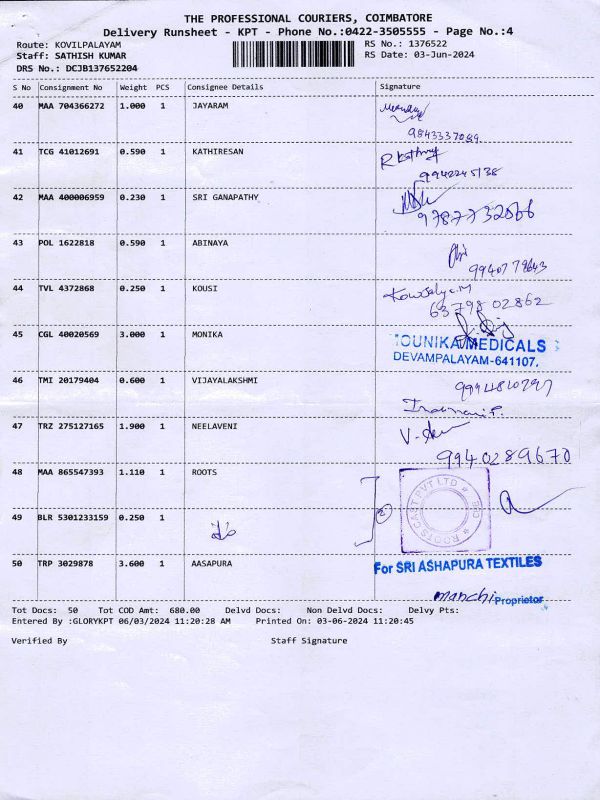 THE PROFESSIONAL COURIERS, COIMBATORE
Delivery Runsheet - KPT - Phone No.:0422-3505555 - Page No.:4
Route: KOVILPALAYAM RS No.: 1376522
Staff: SATHISH KUMAR RS Date: 03-Jun-2024
DRS No.: DCJB137652204
S No Consignment No Weight PCS Consignee Details Signature
40 MAA 704366272 1.000 1 JAYARAM
9843337089
41 TCG 41012691 0.590 1 KATHIRESAN
9942245138
42 MAA 400006959 0.230 1 SRI GANAPATHY
9787732066
43 POL 1622818 0.590 1 ABINAYA
9940779643
44 TVL 4372868 0.250 1 KOUSI
Kowsalya.M
63798 02862
45 CGL 40020569 3.000 1 MONIKA
MOUNIKA MEDICALS
DEVAMPALAYAM-641107.
46 TMI 20179404 0.600 1 VIJAYALAKSHMI
47 TRZ 275127165 1.900 1 NEELAVENI
9940289670
48 MAA 865547393 1.110 1 ROOTS
ROOTS CAST PVT LTD
49 BLR 5301233159 0.250 1
50 TRP 3029878 3.600 1 AASAPURA
For SRI ASHAPURA TEXTILES
manchi Proprietor
Tot Docs: 50 Tot COD Amt: 680.00 Delvd Docs: Non Delvd Docs: Delvy Pts:
Entered By :GLORYKPT 06/03/2024 11:20:28 AM Printed On: 03-06-2024 11:20:45
Verified By Staff Signature